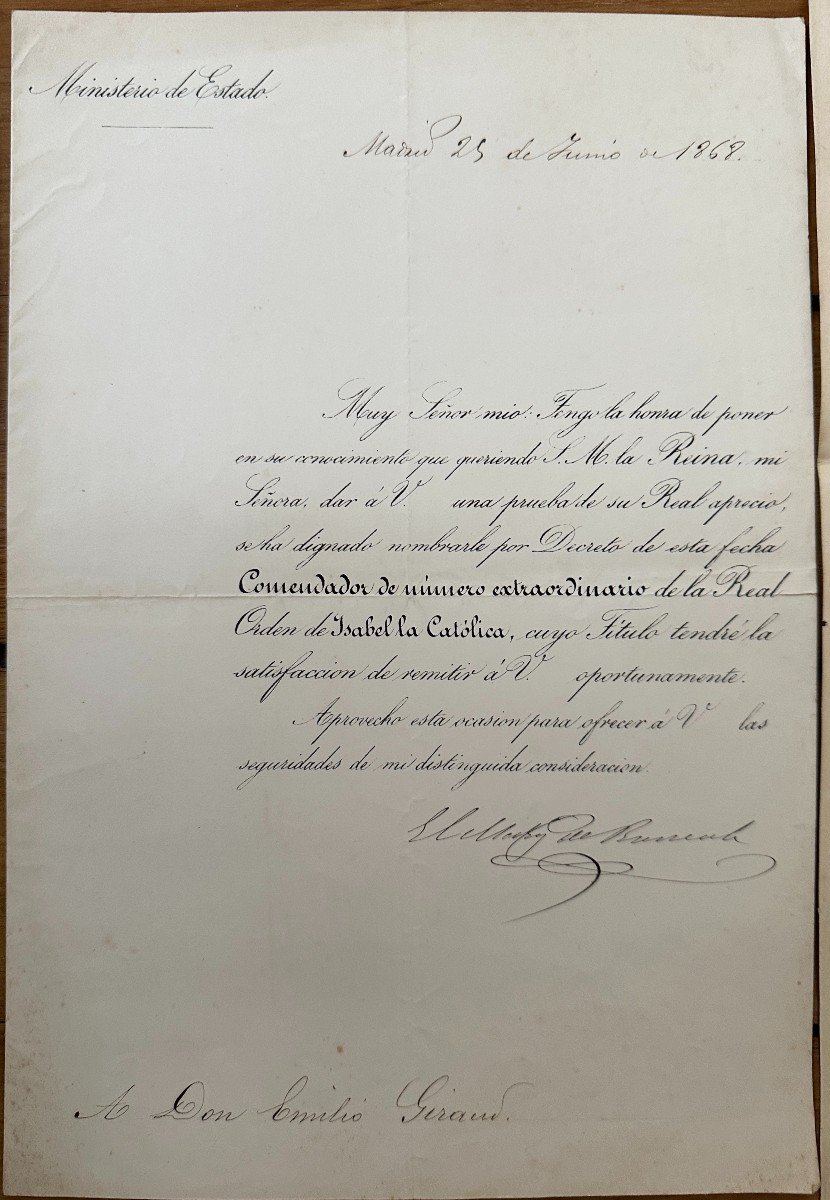 Ministerio de Estado.
Madrid 25 de Junio de 1868.
Muy Señor mio: Tengo la honra de poner
en su conocimiento que queriendo S. M. la Reina, mi
Señora, dar á V. una prueba de su Real aprecio,
se ha dignado nombrarle por Decreto de esta fecha
Comendador de número extraordinario de la Real
Orden de Isabel la Católica, cuyo Título tendré la
satisfaccion de remitir á V. oportunamente.
Aprovecho esta ocasion para ofrecer á V las
seguridades de mi distinguida consideracion.
El de
A Don Emilio Giraud.